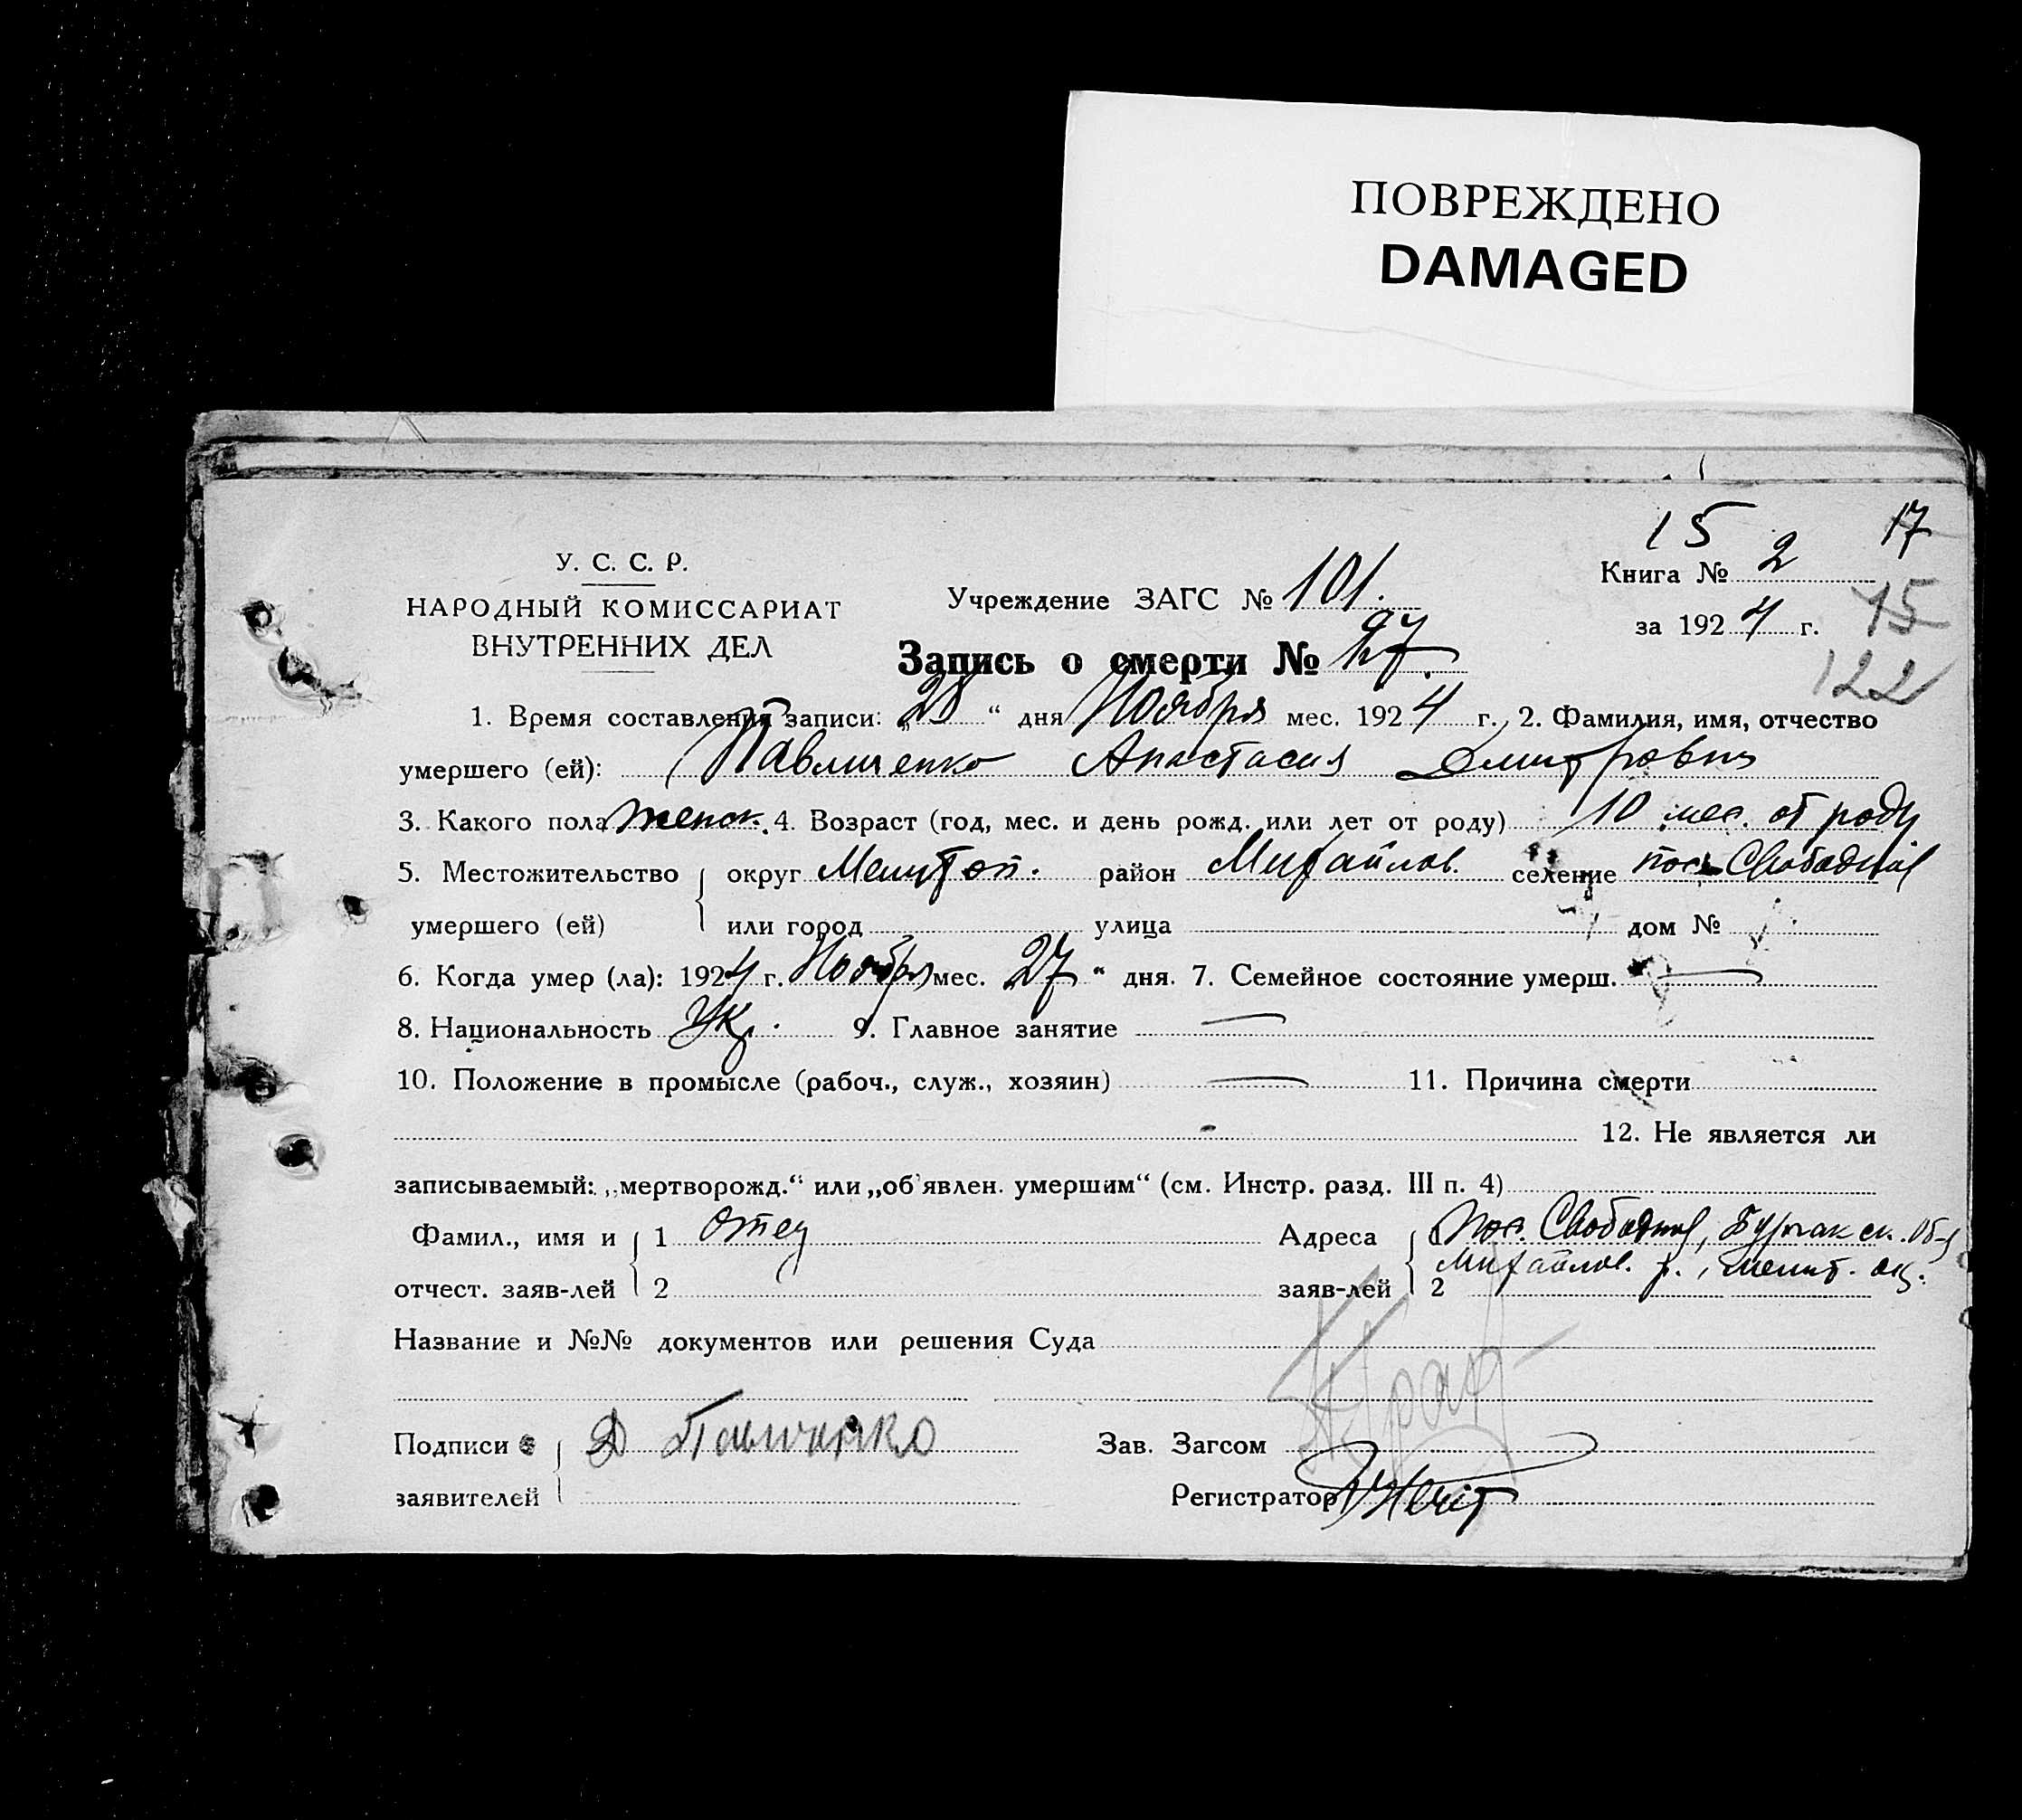 ПОВРЕЖДЕНО
DAMAGED
15 17
У. С. С. Р. Книга № 2
НАРОДНЫЙ КОМИССАРИАТ Учреждение ЗАГС № 101. 15
ВНУТРЕННИХ ДЕЛ за 1924 г.
Запись о смерти № 27. 122
1. Время составления записи: „28“ дня Ноября мес. 1924 г., 2. Фамилия, имя, отчество
умершего (ей): Павличенко Анастасия Дмитровна
3. Какого пола женск. 4. Возраст (год, мес. и день рожд. или лет от роду) 10 мес. от роду
5. Местожительство округ Мелитоп. район Михайлов. селение пос. Свободний
умершего (ей) или город улица дом №
6. Когда умер (ла): 1924 г. Ноября мес. 27“ дня. 7. Семейное состояние умерш. —
8. Национальность Укр. 9. Главное занятие —
10. Положение в промысле (рабоч., служ., хозяин) — 11. Причина смерти
12. Не является ли
записываемый: „мертворожд.“ или „об'явлен. умершим“ (см. Инстр. разд. III п. 4)
Фамил., имя и 1 отец Адреса 1 Пос. Свободний,
отчест. заяв-лей 2 заяв-лей 2 Михайлов. р., мелит. ок.
Название и №№ документов или решения Суда
Подписи Д Павличенко Зав. Загсом
заявителей Регистратор